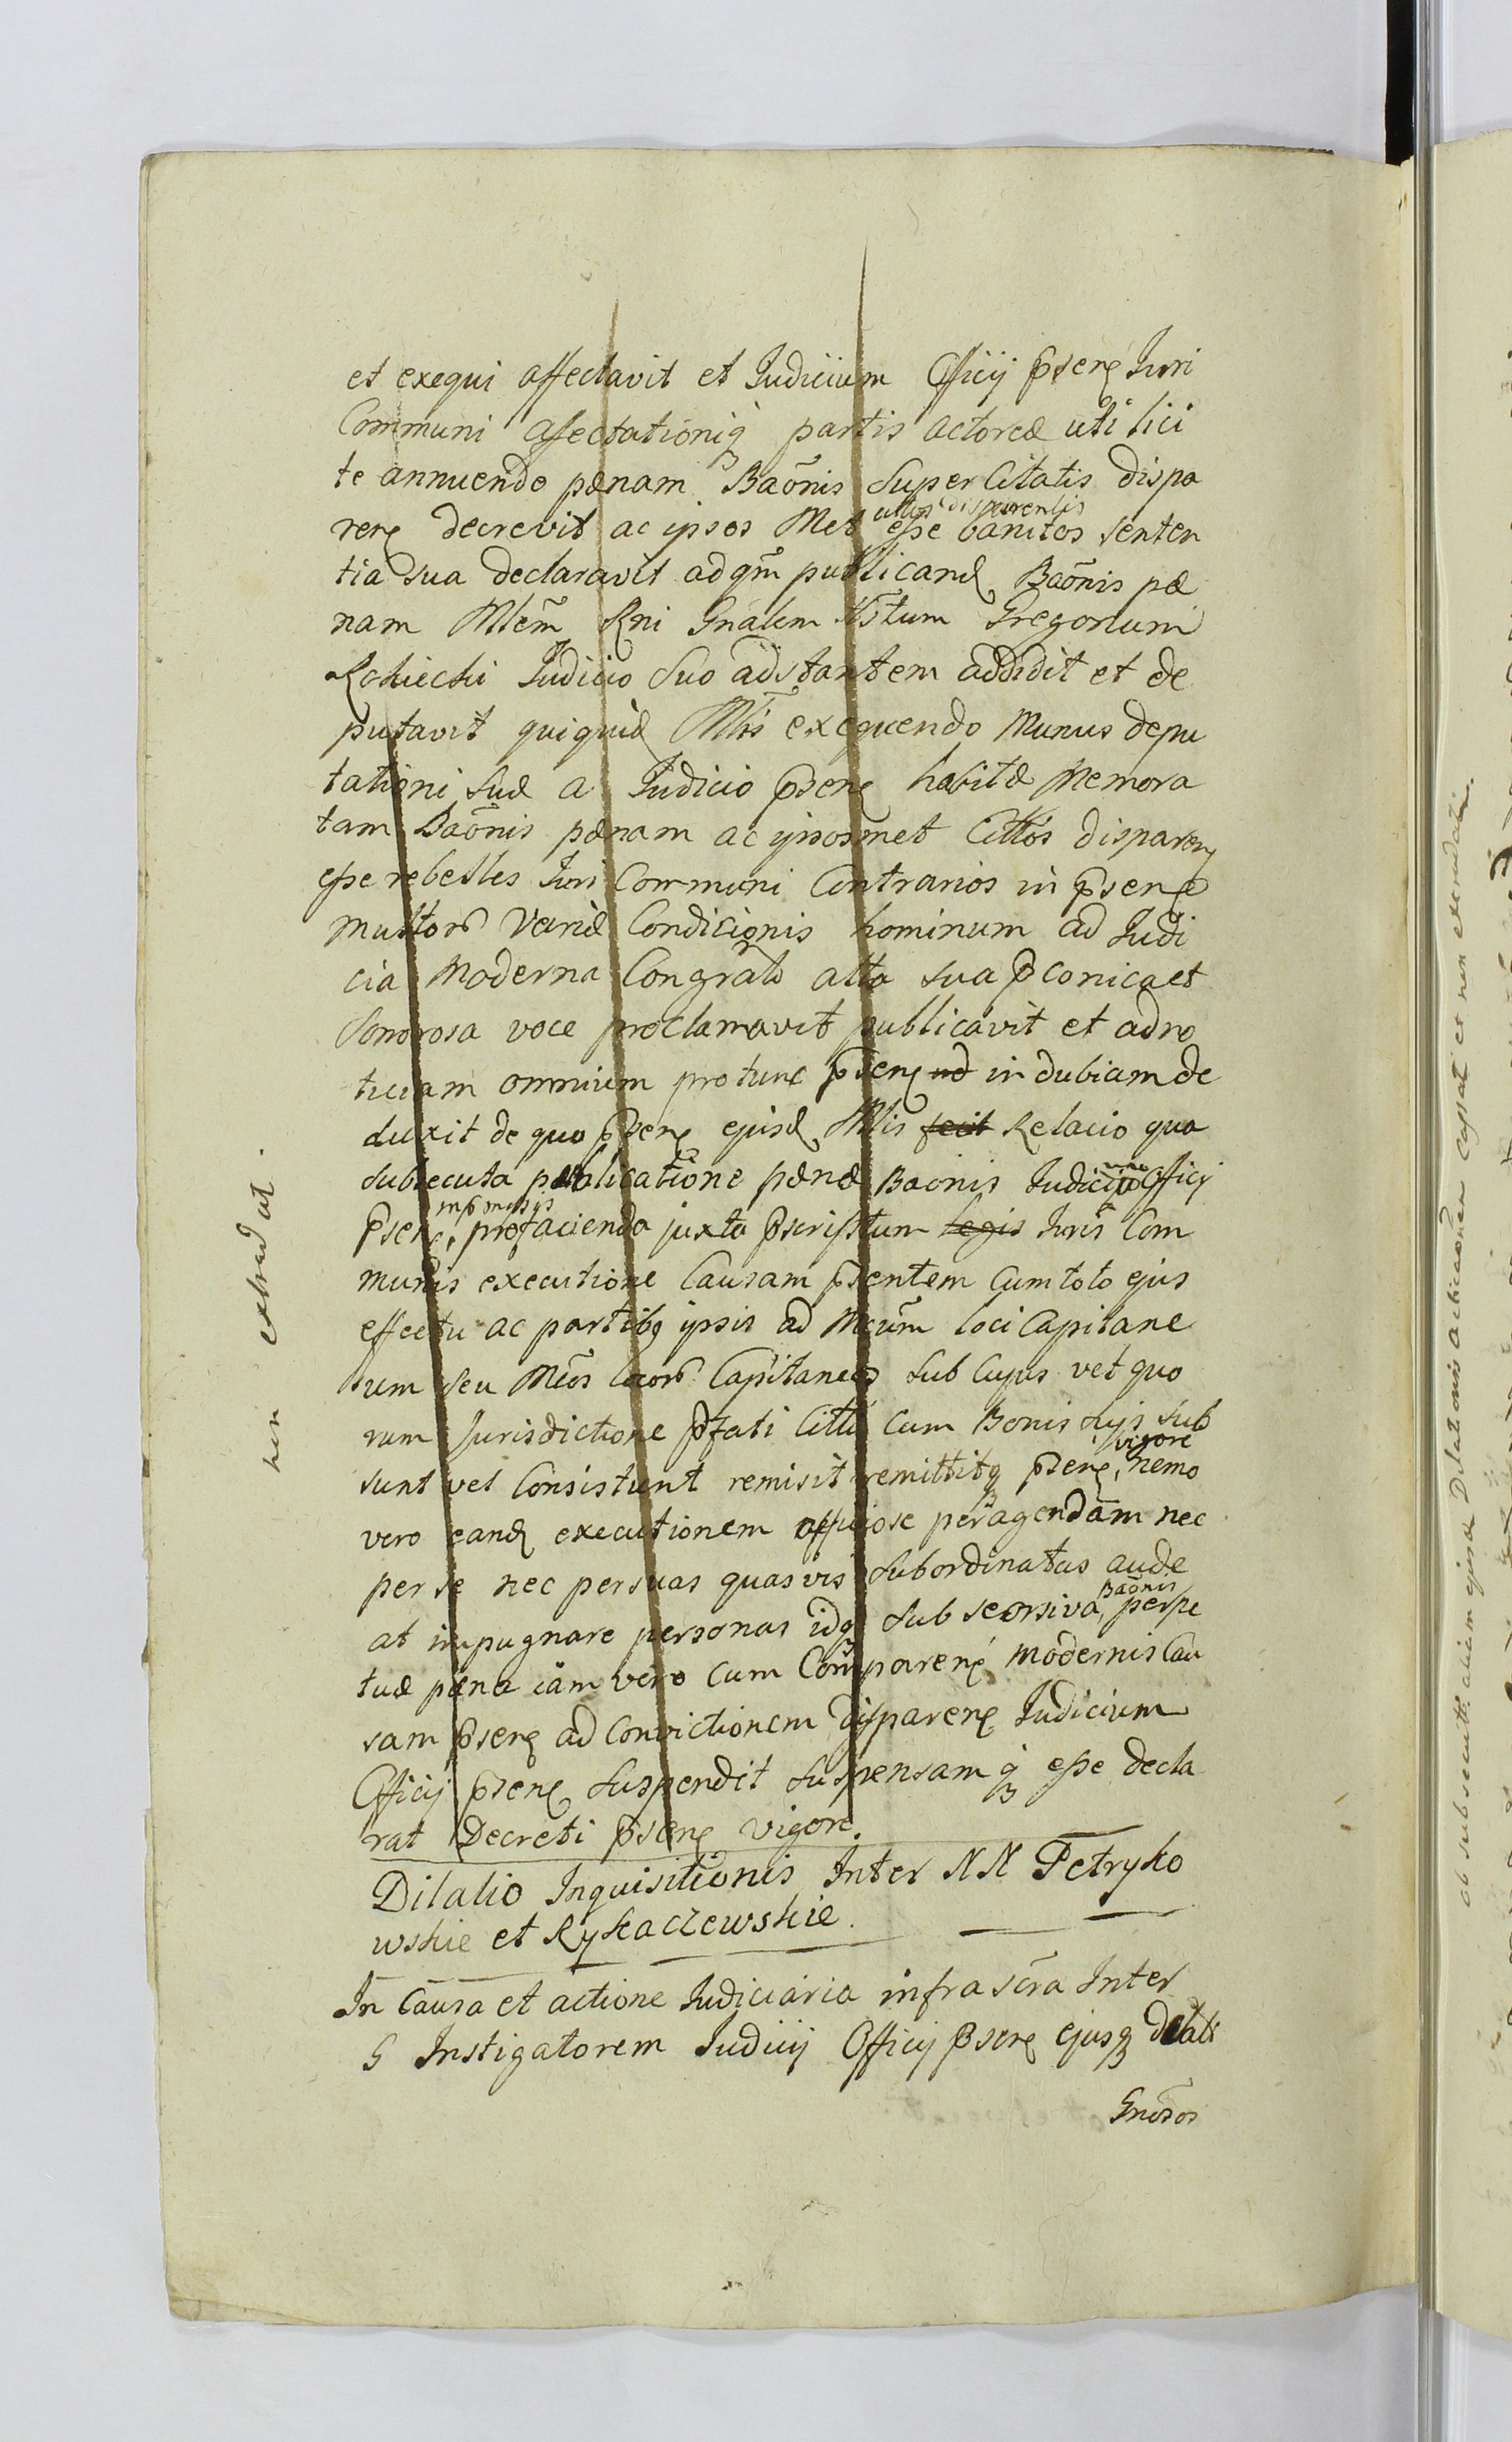 et exequi affectavit et Judicium Officij p̄sen̄ Juri
Communi afectationiq̨ partis actoreæ uti lici
te annuendo pænam Baōnis super Citatis dispa
ren̄ decrevit ac ipsos Met cittos disparentes esse banitos senten
tia sua declaravit ad qm̄ publicand̨ Baōnis pæ
nam Mlem̄ Rni Gnālem Hstum Gregorium
Judicio suo adstantem addidit et de
putavit quiquid̨ Mlis exequendo Munus depu
tationi suæ a Judicio p̄sen̄ habitæ Memora
tam Baōnis pænam ac ipsosmet Cittos disparen̄
esse rebelles Juri Communi Contrarios in p̄sen̄
multorō variæ Condicionis hominum ad Judi
cia moderna Congrāto alta sua p̄conica et
Sonorosa voce proclamavit publicavit et ad no
ticiam omnium pro tunc p̄sen̄ ad in dubiam de
duxit de quo p̄sen̄ ejusd̨ Mlis fecit Relacio qua
subsecuta publicatione pænæ Baōnis Judicium Officij
p̄sen̄ in p̄missis pro facienda juxta p̄scriptum legis Juris Com
munis executione Causam p̄sentem Cum toto ejus
effectu ac partibq̨ ipsis ad Mcum̄ loci Capitane
um seu Mcos locorō Capitaneos sub Cujus vel quo
rum Jurisdictione p̄fati Citti Cum Bonis suis sub
sunt vel Consistunt remisit remittitq̨ p̄sen̄ vigore nemo
vero eand̨ executionem officiose peragendam nec
per se nec per suas quasvis subordinatas aude
at impugnare personas idq̨ sub seorsiva Baōnis perpe
tuæ pæna iam vero cum Comparen̄ modernis Cau
sam p̄sen̄ ad Convictionem disparen̄ Judicium
Officij p̄sen̄ suspendit suspensamq̨ esse decla
rat Decreti p̄sen̄ vigore.
Dilatio Inquisitionis Inter NN Petryko
wskie et Rykaczewskie.
In Causa et actione Judiciaria infra scra Inter
G Instigatorem Judicij Officij p̄sen̄ ejusq̨ delatt
Gnosos
non extradat.
ob subsecutt. aliam ejusd Dilationis acticationem cassat. et non extradatur.